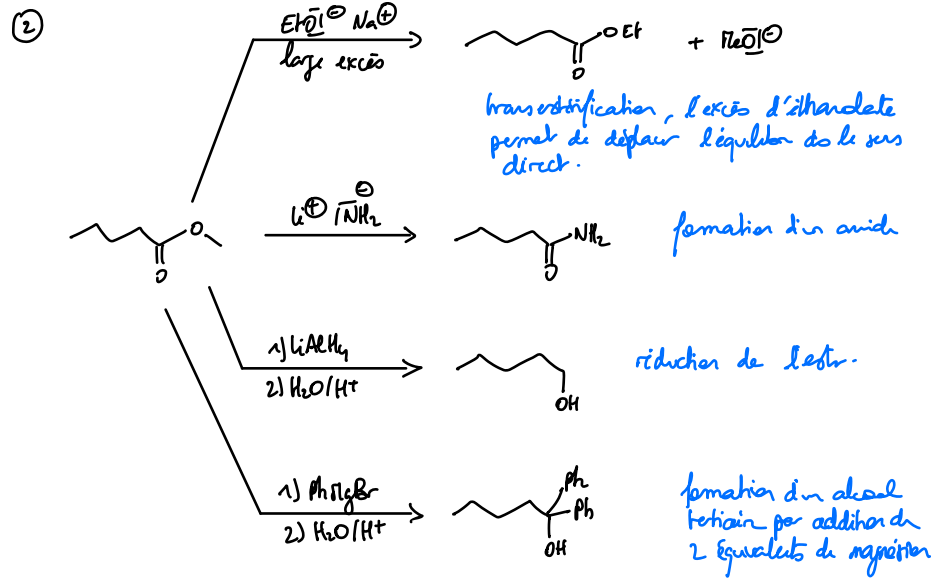 ②
EtO|⊖ Na⊕
large excès
OEt
O
+ MeO|⊖
transestérification, l'excès d'éthanolate
permet de déplacer l'équilibre ds le sens
direct.
O
O
Li⊕ |NH₂⊖
NH₂
O
formation d'un amide
1) LiAlH₄
2) H₂O/H⁺
OH
réduction de l'ester.
1) PhMgBr
2) H₂O/H⁺
Ph
Ph
OH
formation d'un alcool
tertiaire par addition de
2 équivalents de magnésien